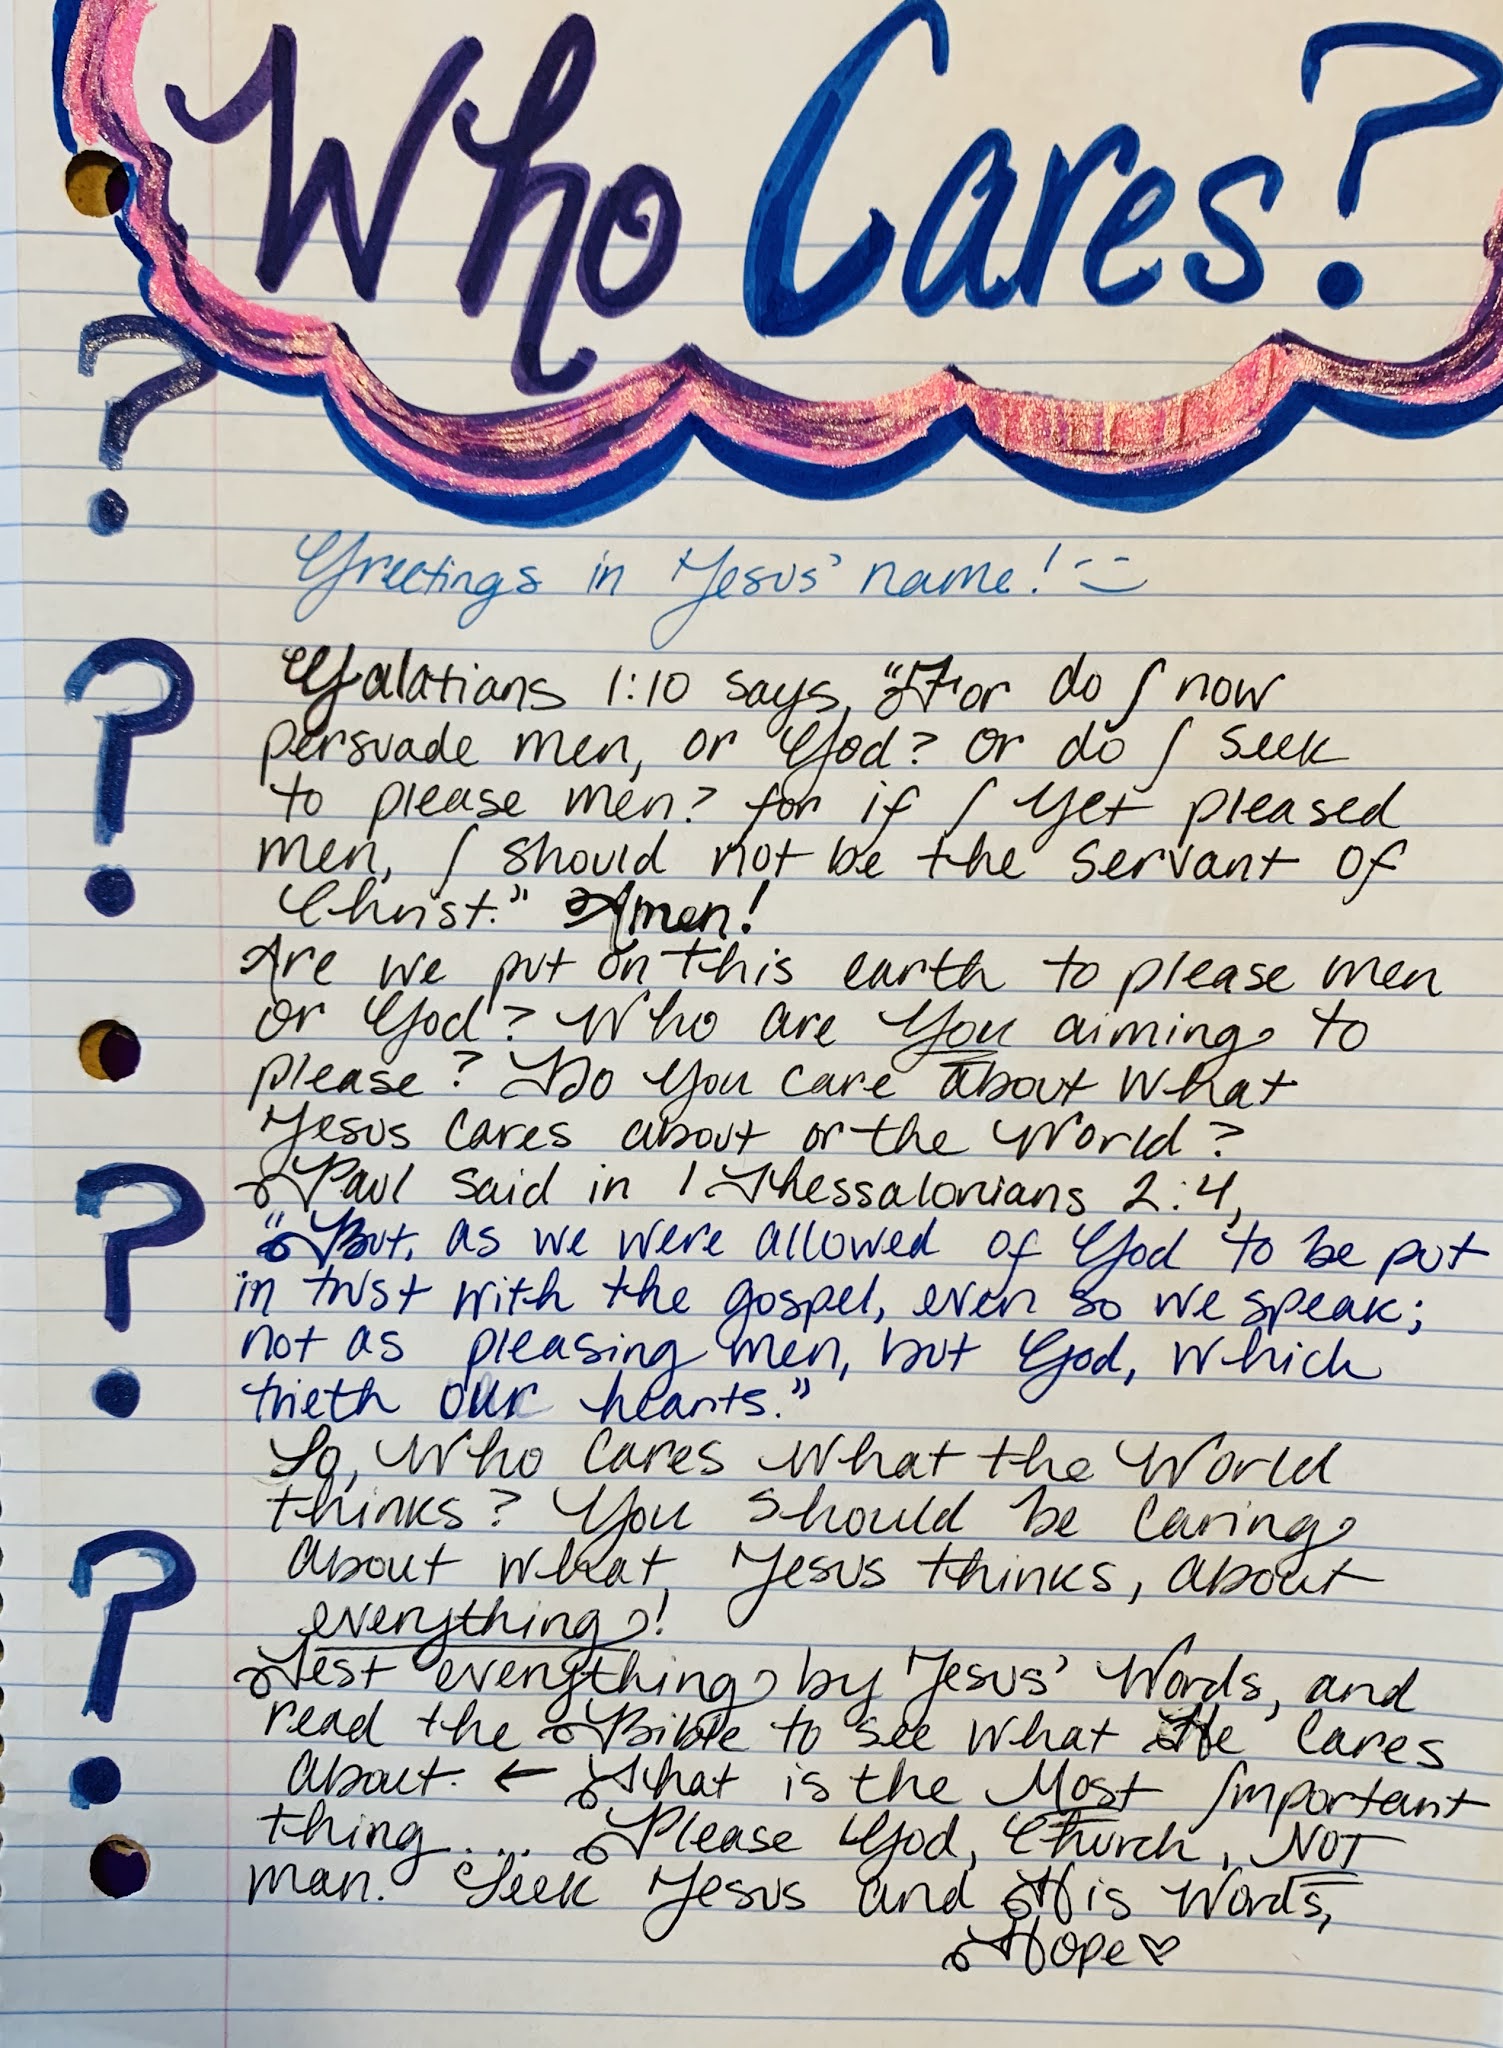 Who Cares?
Greetings in Jesus' name! :)
Galatians 1:10 says, "For do I now
persuade men, or God? Or do I seek
to please men? for if I yet pleased
men, I should not be the servant of
Christ." Amen!
Are we put on this earth to please men
or God? Who are You aiming to
please? Do You care about what
Jesus cares about or the World?
Paul said in 1 Thessalonians 2:4,
"But, as we were allowed of God to be put
in trust with the gospel, even so we speak;
not as pleasing men, but God, which
trieth our hearts."
So, Who Cares What the World
thinks? You should be caring
about what Jesus thinks, about
everything!
Test everything by Jesus' Words, and
read the Bible to see what He cares
about. ← That is the Most Important
thing.... Please God, Church, NOT
man. Seek Jesus and His Words,
Hope ♡
?
?
?
?